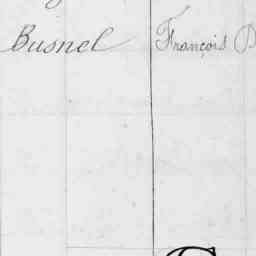 Busnel François